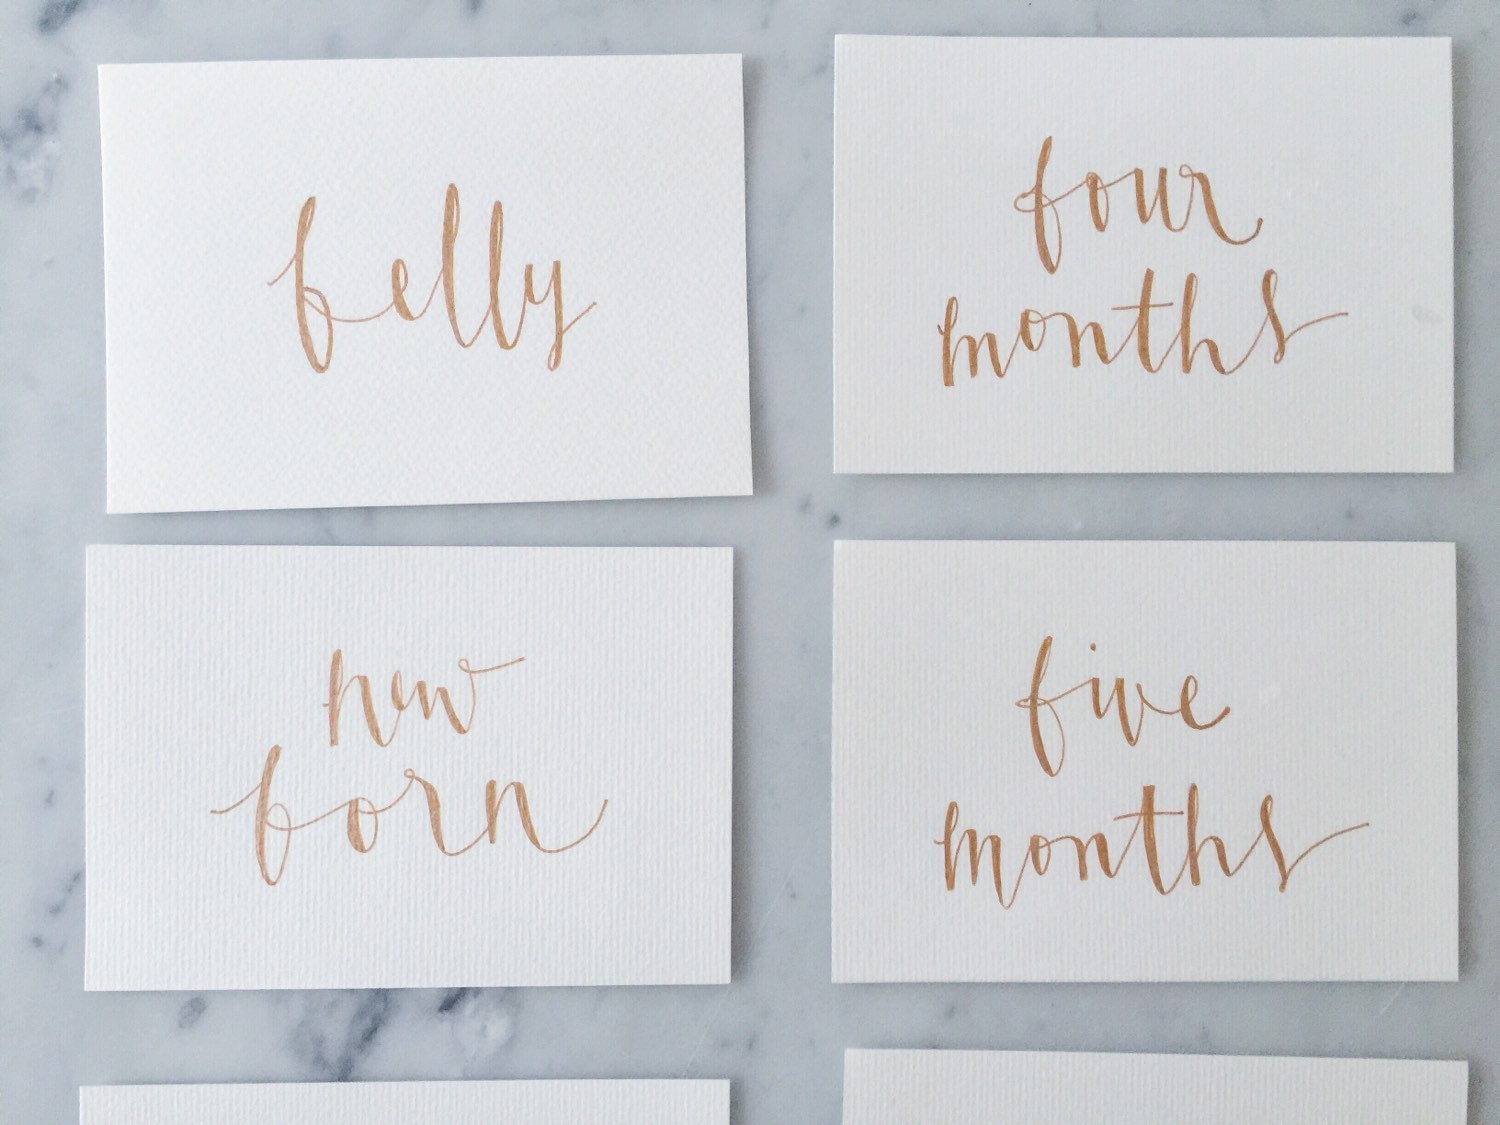 belly
four
months
new
born
five
months